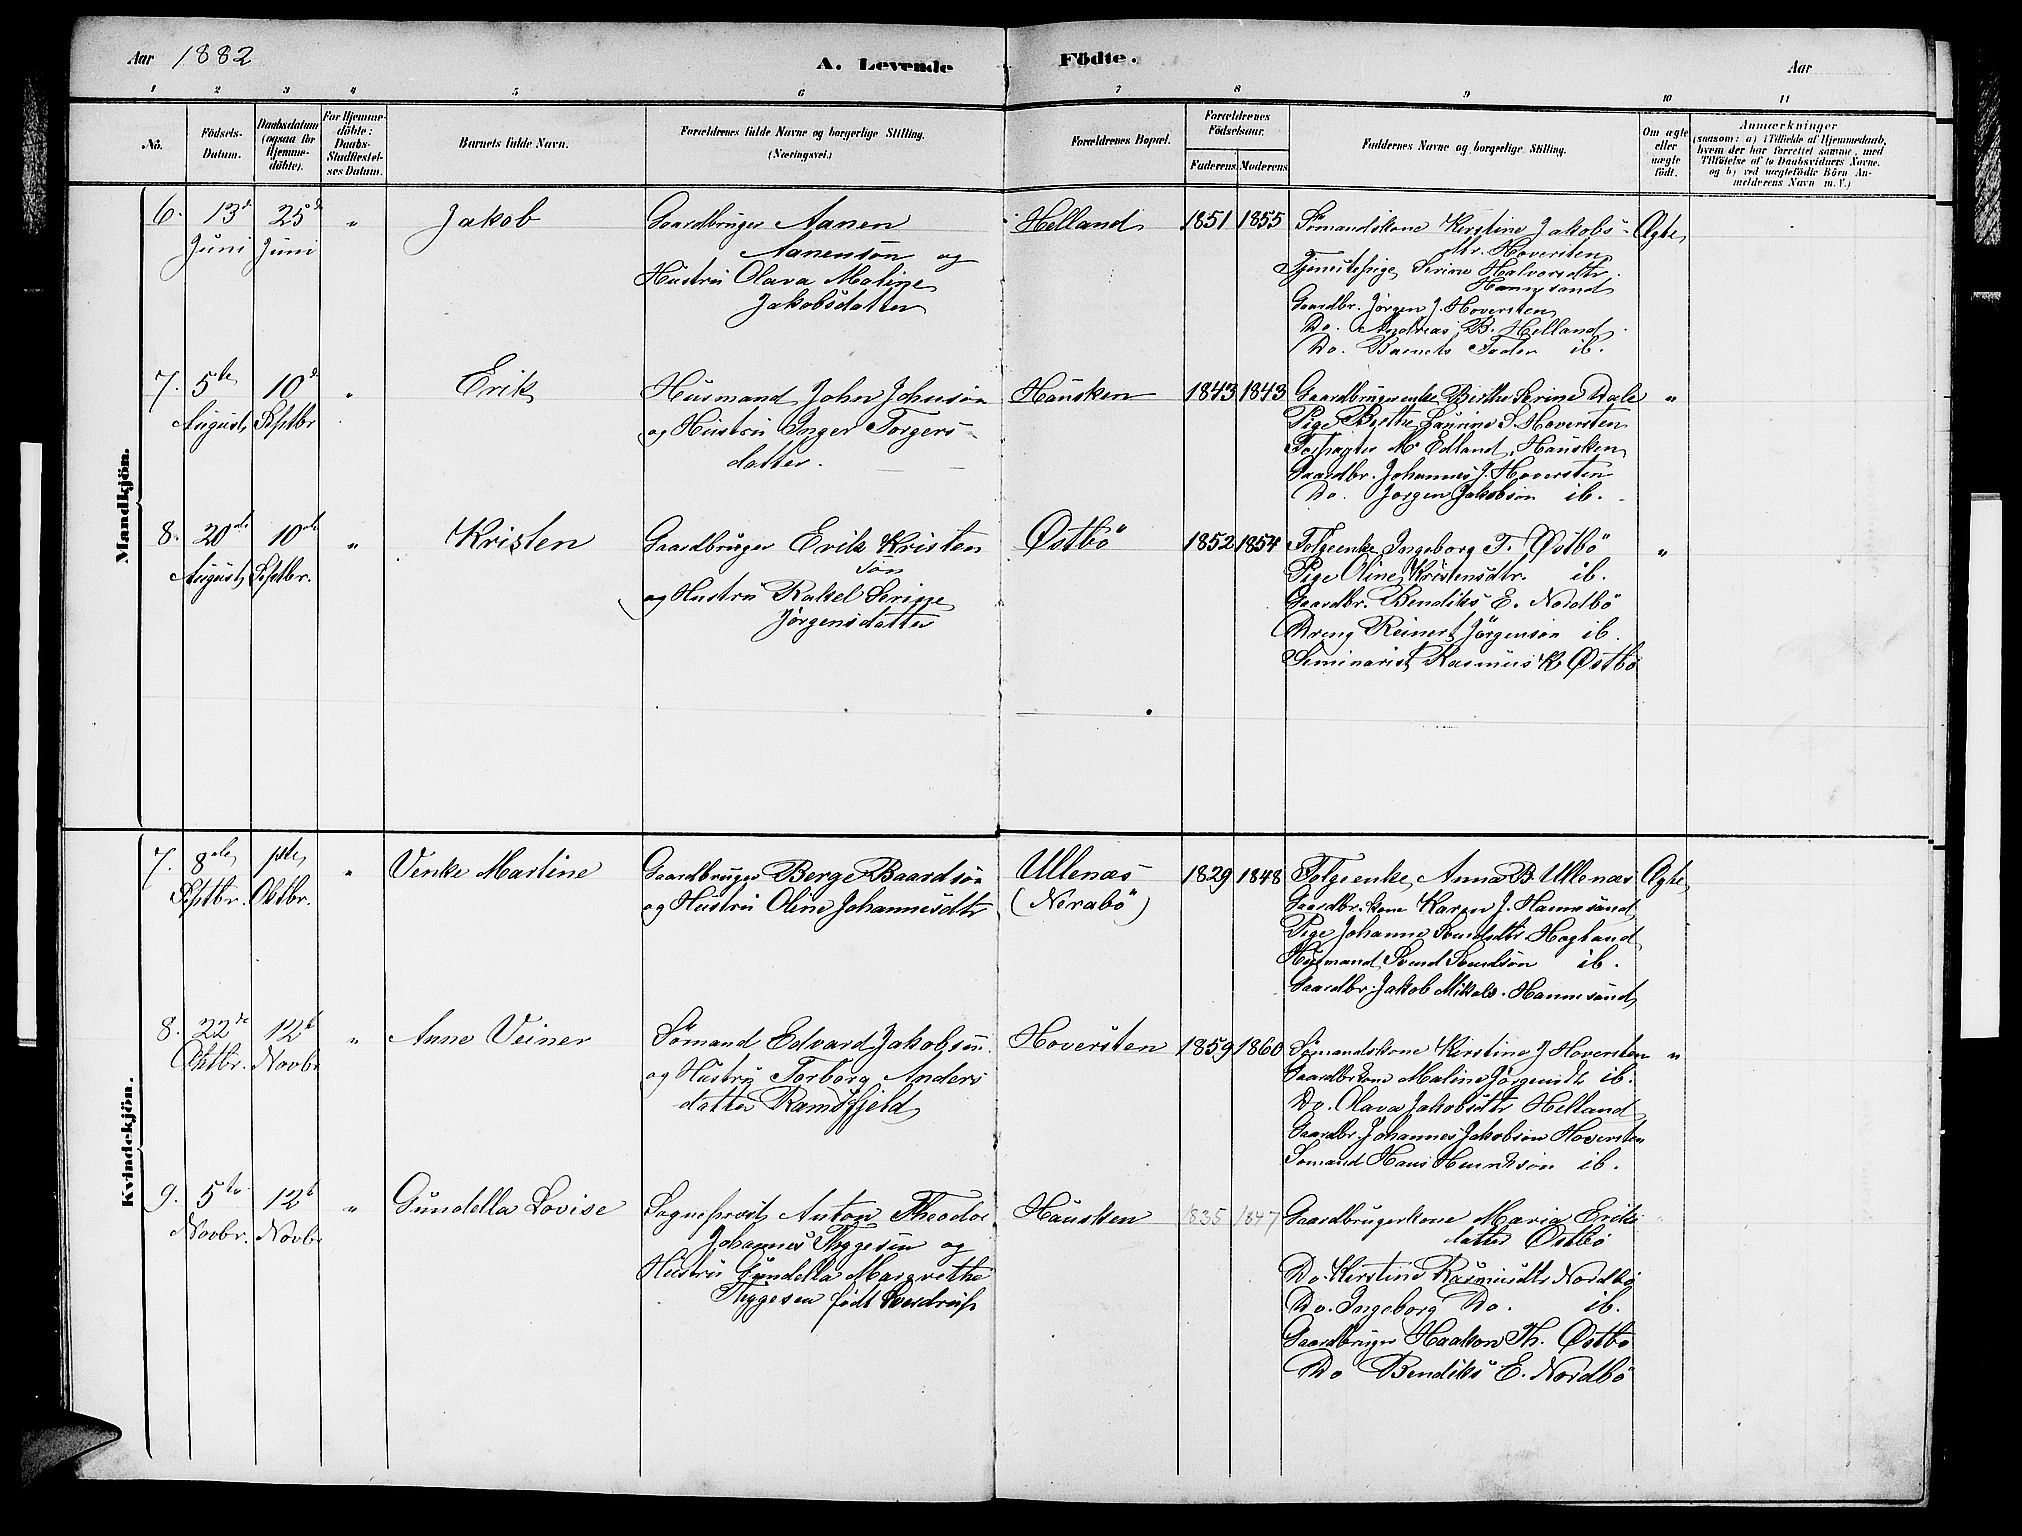 Aar 1882
A. Levende Födte.
Aar
1 2 3 4 5 6 7 8 9 10 11
No.
Födsels-Datum.
Daabsdatum (ogsaa for Hjemme-döbte).
For Hjemme-döbte: Daabs-Stadfæstel-ses Datum.
Barnets fulde Navn.
Forældrenes fulde Navne og borgerlige Stilling.
(Næringsvei.)
Forældrenes Bopæl.
Forældrenes Födselsaar.
Faderens. Moderens.
Faddernes Navne og borgerlige Stilling.
Om ægte eller uægte födt.
Anmærkninger
(saasom: a) i Tilfælde af Hjemmedaab,
hvem der har forrettet samme, med
Tilföielse af to Daabsvidners Navne,
og b) ved uægtefödte Börn An-
melderens Navn m. V.)
Mandkjön.
6. 13d Juni 25d Juni " Jakob
Gaardbruger Aanen
Aanensön og
Hustru Olava Maline
Jakobsdatter
Helland 1851 1855
Sömandskone Kerstine Jakobs-
dtr. Hoversten
Tjenestepige Serine Halvorsdtr.
Hannesand
Gaardbr. Jörgen J. Hoversten
Do. Andreas B. Helland
Do. Barnets Fader ib.
Ægte
7. 5te August 10d Septbr " Erik
Husmand John Johnsön
og Hustru Inger Torgers-
datter.
Hausken 1843 1843
Gaardbrugerenke Berthe Serine Dale
Pige Berthe Laurine S. Hoversten
Forpagter M. Edland, Hausken
Gaardbr. Johannes J. Hoversten
Do. Jörgen Jakobsön ib.
"
8. 20de August 10de Septbr. " Kristen
Gaardbruger Erik Kristen
sön
og Hustru Rakel Serine
Jörgensdatter
Østbö 1852 1854
Folgeenke Ingeborg T. Østbö
Pige Oline Kristensdtr. ib.
Gaardbr. Bendiks E. Nordbö
Dreng Reinert Jörgensön ib.
Seminarist Rasmus K. Østbö
"
Kvindekjön.
7. 8de Septbr. 1ste Oktbr. " Venke Martine
Gaardbruger Berge Baardsön
og Hustru Oline Johannesdtr
Ullenæs
(Nerabö)
1829 1848
Folgeenke Anna B. Ullenæs
Gaardbr. kone Karen J. Hannesand
Pige Johanne Svendsdtr Hagland
Husmand Svend Svendsön ib.
Gaardbr. Jakob Mikals. Hannesand
Ægte
8. 22de Oktbr. 12t Novbr " Anne Veiner
Sömand Edvard Jakobsen
og Hustru Torborg Anders
datter Ramsfjeld
Hoversten 1859 1860
Sømandskone Kerstine J Hoversten
Gaardbr.kone Maline Jörgensdtr ib.
Do. Olava Jakobsdtr Helland
Gaardbr. Johannes Jakobsön Hoversten
Sömand Hans Henriksön ib.
"
9. 5te Novbr. 12t Novbr " Gundella Lovise
Sogneprest Anton Theodor
Johannes Thygesen og
Hustru Gundella Margrethe
Thygesen födt Sverdrup
Hausken 1835 1847
Gaardbrugerkone Maria Eriks
datter Østbö
Do. Kerstine Rasmusdtr Nordbö
Do. Ingeborg Do. ib.
Gaardbruger Haakon Th. Østbö
Do Bendiks E. Nordbö
"